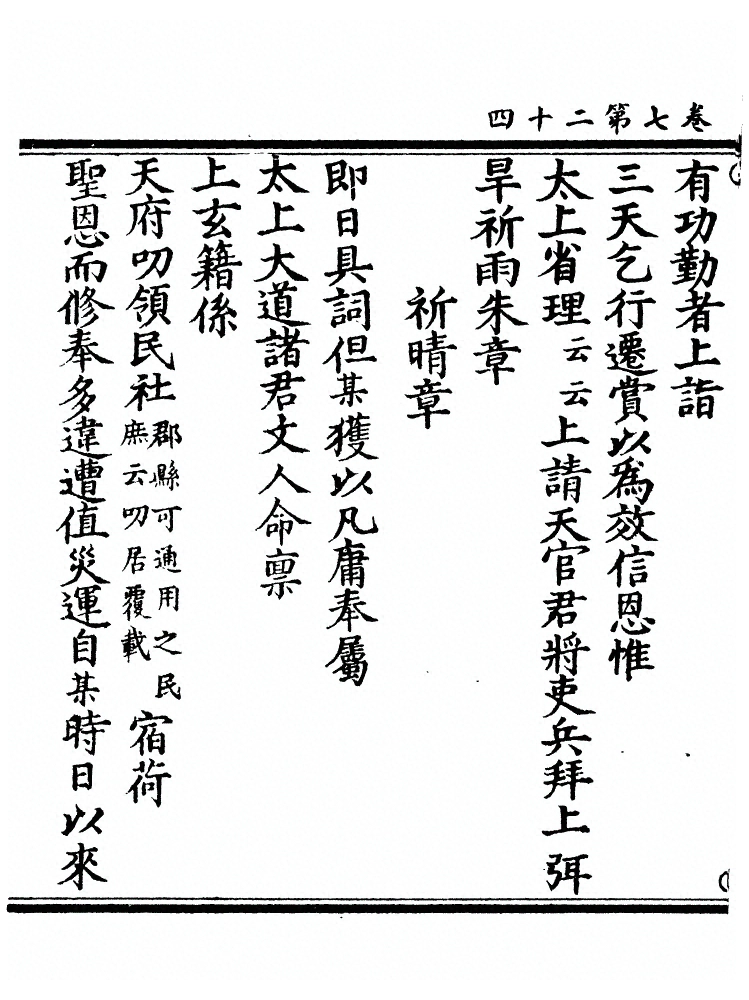 卷七第二十四
有功勤者上詣
三天乞行遷賞以為效信恩惟
太上省理云云上請天官君將吏兵拜上弭
旱祈雨朱章
祈晴章
即日具詞但某獲以凡庸奉屬
太上大道諸君丈人命稟
上玄籍係
天府叨領民社郡縣可通用之民庶云叨居覆載宿荷
聖恩而修奉多違遭值災運自某時日以來